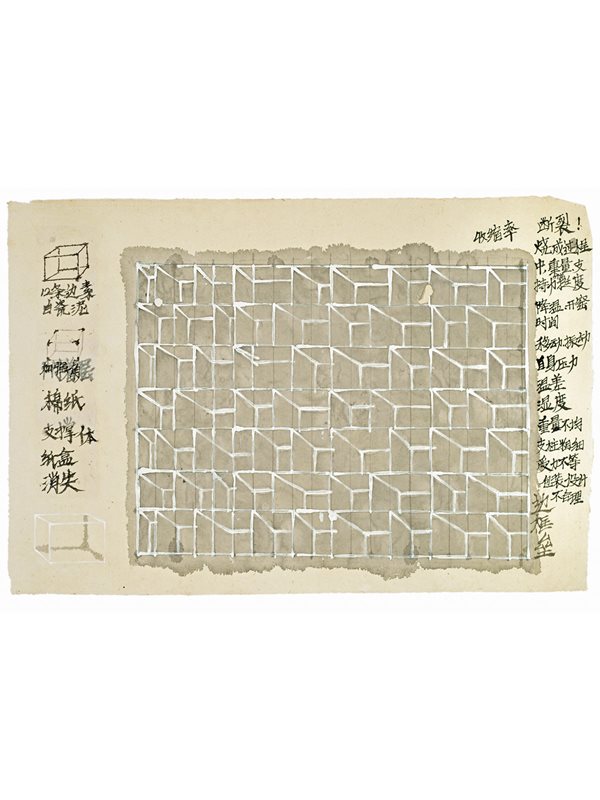 12条边素
白瓷泥
棉纸
支撑体
纸盒
消失
收缩率
断裂！
烧成过程
中重量支
持功率速度
降温开窑
时间
移动振动
自身压力
温差
湿度
重量不均
支柱粗细
受力不等
包装设计
不合理
边框垒